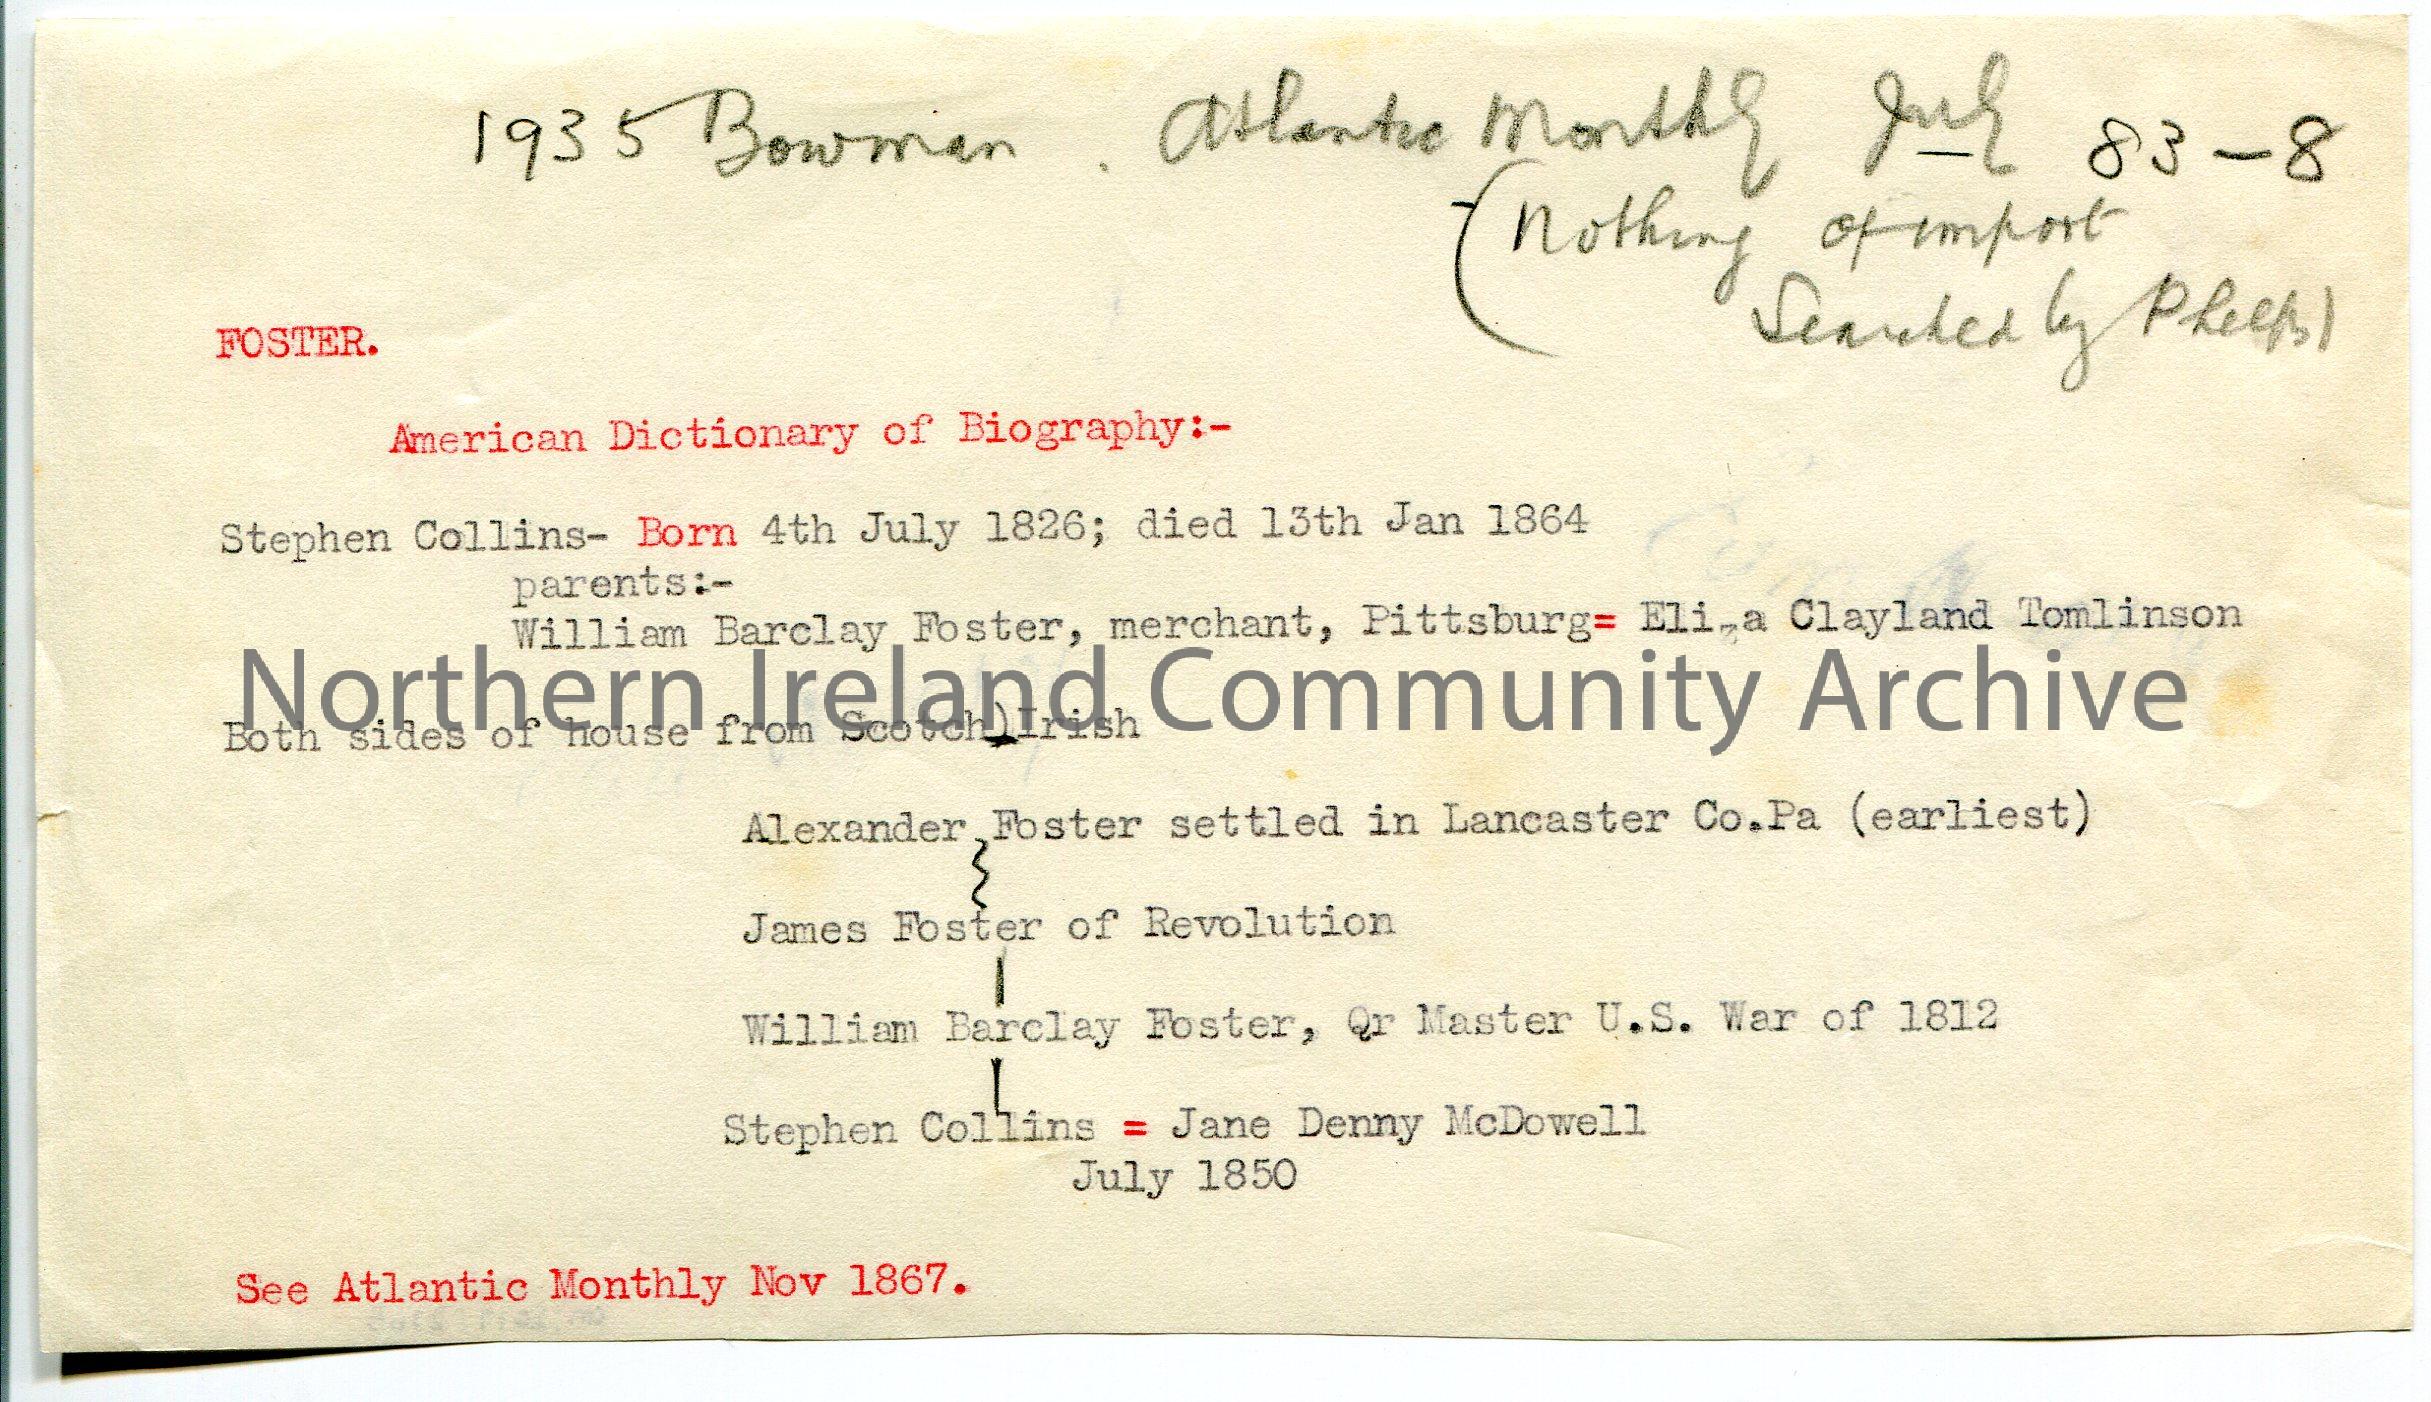 1935 Bowman. Atlantic Monthly July 83-8
(Nothing of import
Searched by Phelps)
FOSTER.
American Dictionary of Biography:-
Stephen Collins- Born 4th July 1826; died 13th Jan 1864
parents:-
William Barclay Foster, merchant, Pittsburg= Eliza Clayland Tomlinson
Northern Ireland Community Archive
Both sides of house from Scotch)Irish
Alexander Foster settled in Lancaster Co.Pa (earliest)
James Foster of Revolution
William Barclay Foster, Qr Master U.S. War of 1812
Stephen Collins = Jane Denny McDowell
July 1850
See Atlantic Monthly Nov 1867.